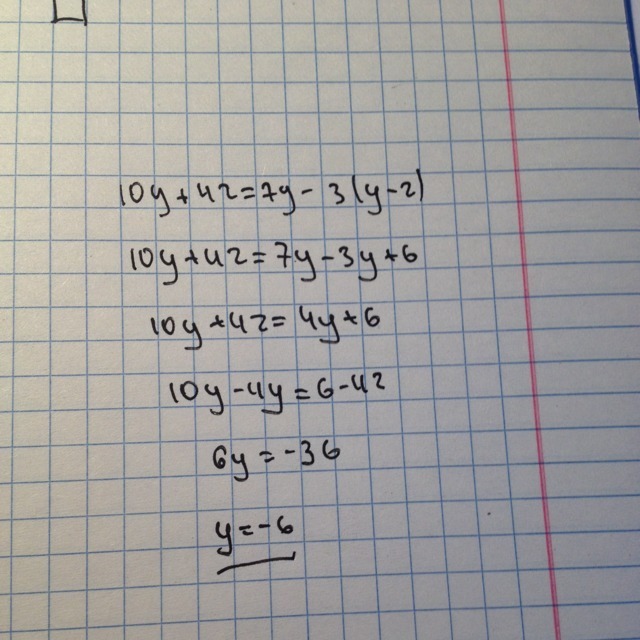 10y+42=7y-3(y-2)
10y+42=7y-3y+6
10y+42=4y+6
10y-4y=6-42
6y=-36
y=-6